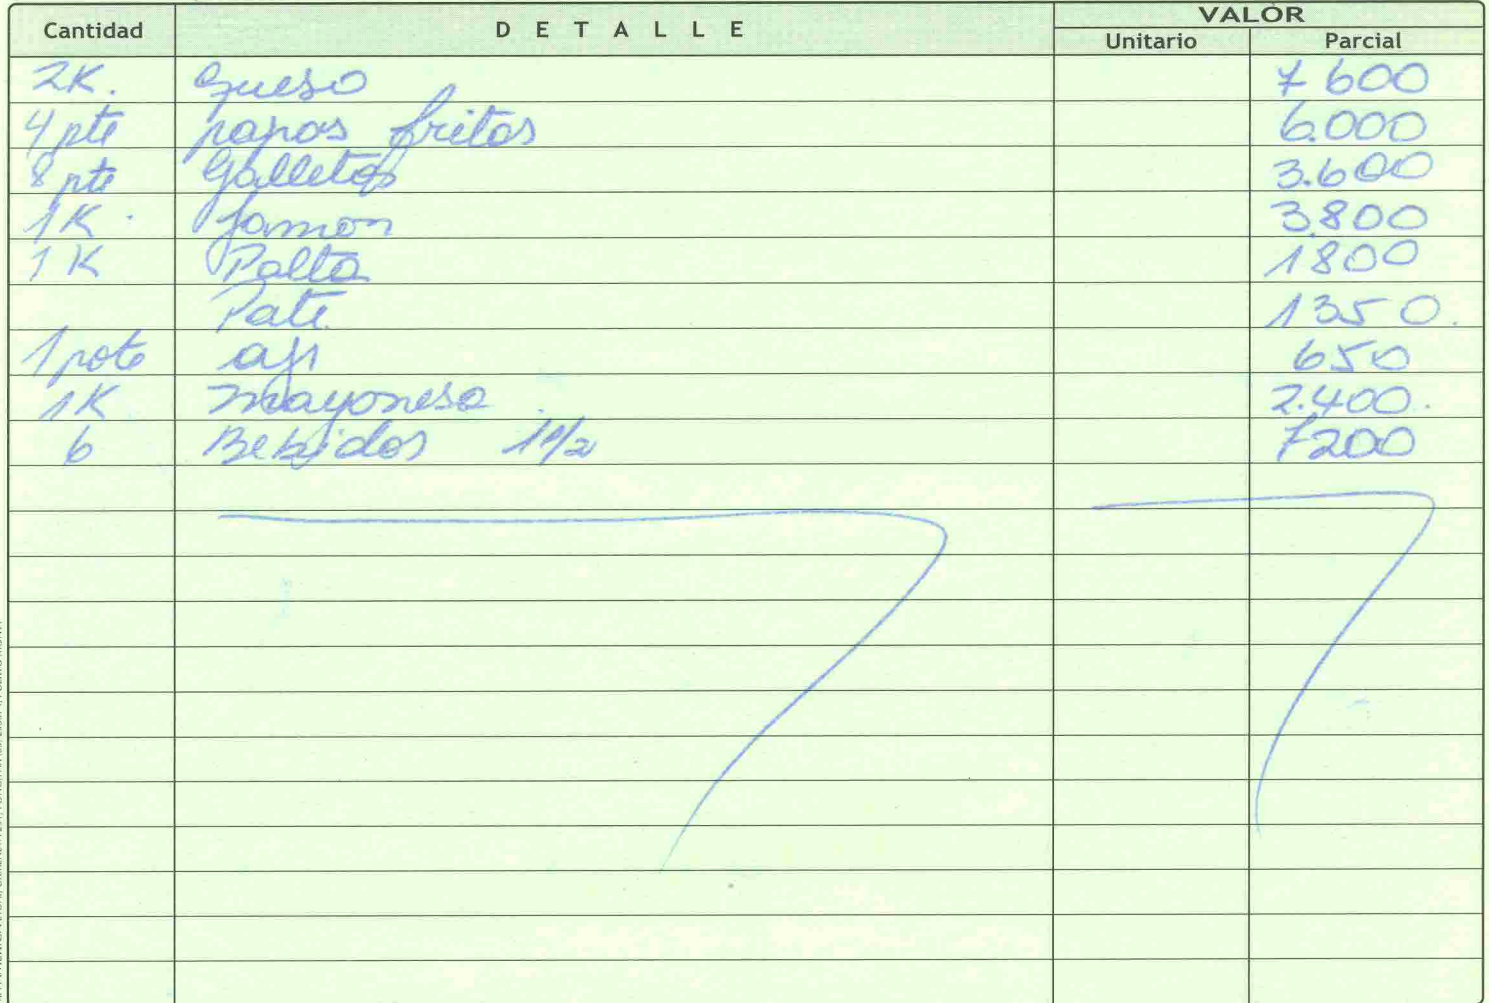 Cantidad DETALLE VALOR
Unitario Parcial
2K. Queso 7600
4 pte papas fritas 6.000
8 pte Galletas 3.600
1K. Jamon 3.800
1K Palta 1800
Pate 1350.
1 pote aji 650
1K Mayonesa 2.400.
6 Bebidas 1 1/2 7200